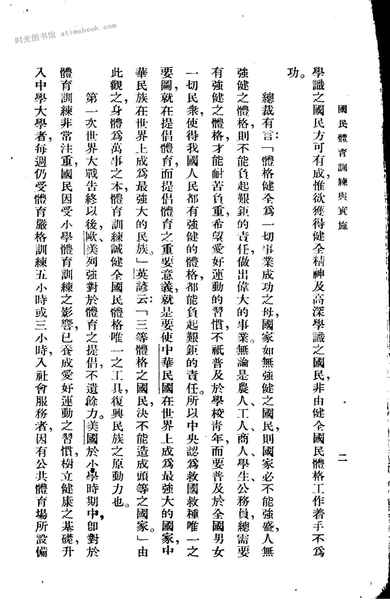 时光图书馆 atimebook.com
國民體育訓練與實施
二
學識之國民方可有成惟欲獲得健全精神及高深學識之國民非由健全國民體格工作着手不爲
功。
總裁有言「體格健全爲一切事業成功之母國家如無強健之國民則國家必不能強盛人無
強健之體格則不能負起艱鉅的責任做出偉大的事業無論是農人工人商人學生公務員總需要
有強健之體格才能耐苦負重希望愛好運動的習慣不祇普及於學校青年而要普及於全國男女
一切民衆使得我國人民都有強健的體格都能負起艱鉅的責任。所以中央認爲救國救種唯一之
要圖就在提倡體育而提倡體育之重要意義就是要使中華民國在世界上成爲最強大的國家中
華民族在世界上成爲最強大的民族」英諺云「三等體格之國民決不能造成頭等之國家」由
此觀之身體爲萬事之本體育訓練誠健全國民體格唯一之工具復興民族之原動力也。
第一次世界大戰告終以後歐美列強對於體育之提倡不遺餘力。美國於小學時期中卽對於
體育訓練非常注重國民因受小學體育訓練之影響已養成愛好運動之習慣樹立健康之基礎升
入中學大學者每週仍受體育嚴格訓練五小時或三小時入社會服務者因有公共體育場所設備